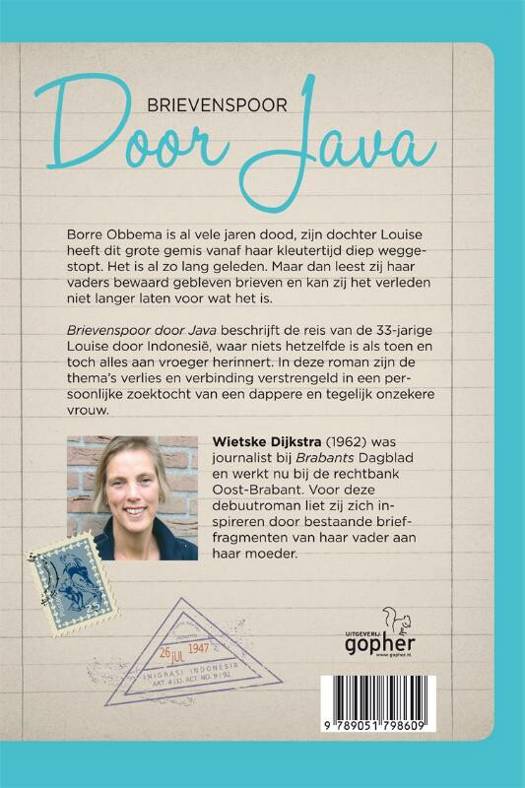 BRIEVENSPOOR
Door Java
Borre Obbema is al vele jaren dood, zijn dochter Louise
heeft dit grote gemis vanaf haar kleutertijd diep wegge-
stopt. Het is al zo lang geleden. Maar dan leest zij haar
vaders bewaard gebleven brieven en kan zij het verleden
niet langer laten voor wat het is.
Brievenspoor door Java beschrijft de reis van de 33-jarige
Louise door Indonesië, waar niets hetzelfde is als toen en
toch alles aan vroeger herinnert. In deze roman zijn de
thema's verlies en verbinding verstrengeld in een per-
soonlijke zoektocht van een dappere en tegelijk onzekere
vrouw.
Wietske Dijkstra (1962) was
journalist bij Brabants Dagblad
en werkt nu bij de rechtbank
Oost-Brabant. Voor deze
debuutroman liet zij zich in-
spireren door bestaande brief-
fragmenten van haar vader aan
haar moeder.
26 JUL 1947
IMIGRASI INDONESIA
ART. 4 JJ. ACT. NO. 9/92
UITGEVERIJ
gopher
www.gopher.nl
9 789051 798609